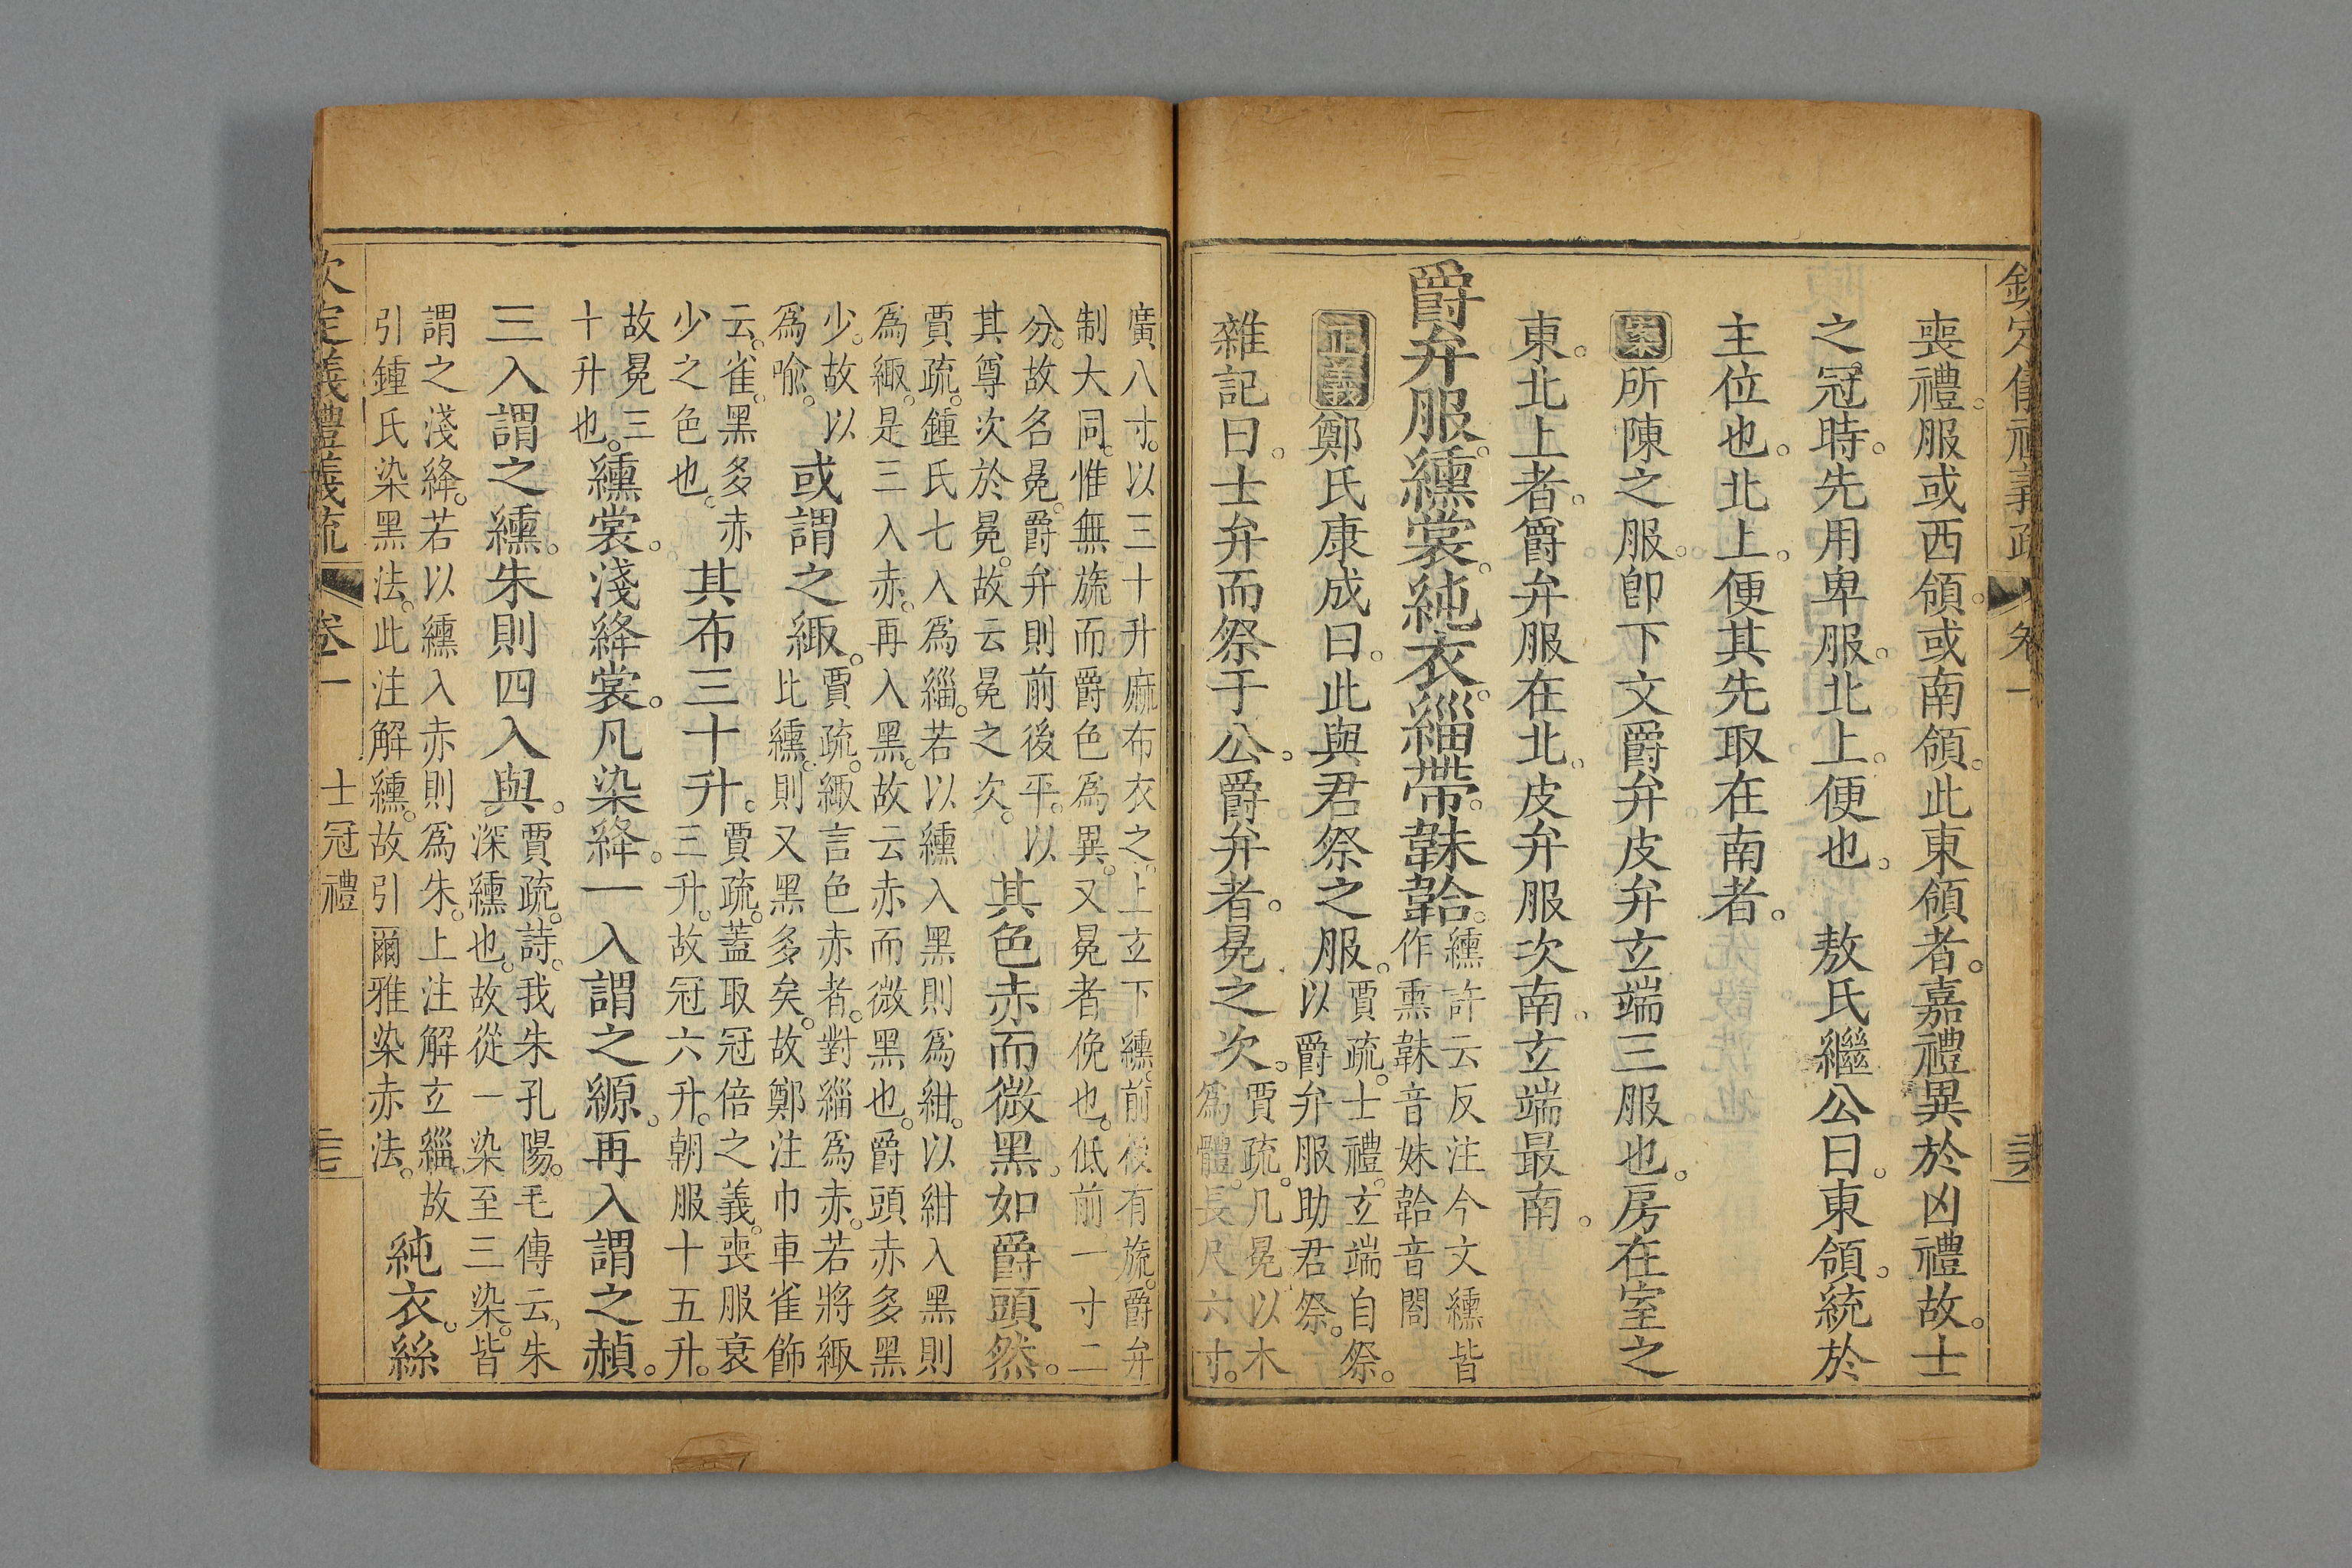 欽定儀禮義疏 卷一
喪禮。服或西領。或南領。此東領者。嘉禮異於凶禮故。士
之冠時。先用卑服。北上。便也。 敖氏繼公曰。東領。統於
主位也。北上。便其先取在南者。
案所陳之服。卽下文爵弁皮弁玄端三服也。房在室之
東。北上者。爵弁服在北。皮弁服次南。玄端最南。
爵弁服。纁裳。純衣。緇帶。韎韐。纁許云反注今文纁皆
作熏韎音妹韐音閤
正義鄭氏康成曰。此與君祭之服。賈疏。士禮。玄端自祭。
以爵弁服助君祭。
雜記曰。士弁而祭于公。爵弁者。冕之次。賈疏。凡冕以木
爲體。長尺六寸。
廣八寸。以三十升麻布衣之。上玄下纁。前後有旒。爵弁
制大同。惟無旒而爵色爲異。又冕者俛也。低前一寸二
分。故名冕。爵弁則前後平。以
其尊次於冕。故云冕之次。
其色赤而微黑。如爵頭然。
賈疏。鍾氏七入爲緇。若以纁入黑則爲紺。以紺入黑則
爲緅。是三入赤。再入黑。故云赤而微黑也。爵頭赤多黑
少。故以
爲喩。
或謂之緅。賈疏。緅言色赤者。對緇爲赤。若將緅
比纁。則又黑多矣。故鄭注巾車雀飾
云。雀。黑多赤
少之色也。
其布三十升。賈疏。蓋取冠倍之義。喪服衰
三升。故冠六升。朝服十五升。
故冕三
十升也。
纁裳。淺絳裳。凡染絳。一入謂之縓。再入謂之赬。
三入謂之纁。朱則四入與。賈疏。詩。我朱孔陽。毛傳云。朱
深纁也。故從一染至三染。皆
謂之淺絳。若以纁入赤則爲朱。上注解玄緇。故
引鍾氏染黑法。此注解纁。故引爾雅染赤法。
純衣。絲
欽定儀禮義疏 卷一 士冠禮